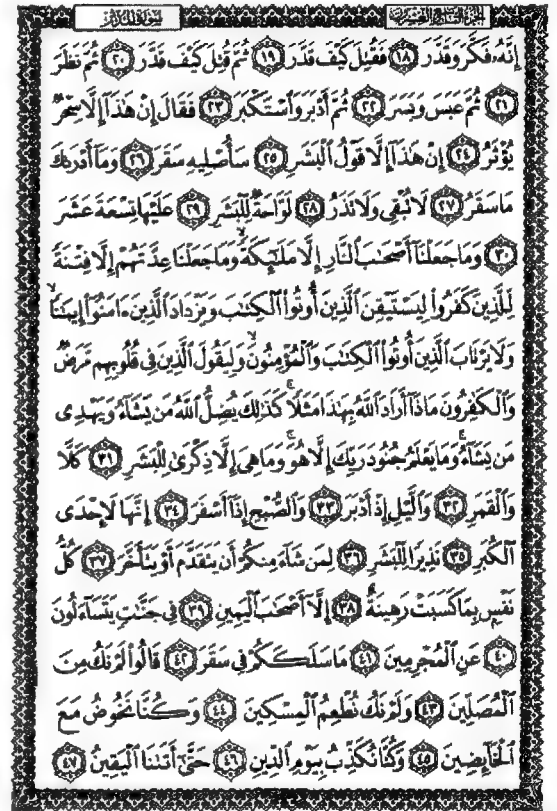 سورة المدثر الجزء التاسع والعشرون
إِنَّهُۥ فَكَّرَ وَقَدَّرَ ﴿١٨﴾ فَقُتِلَ كَيْفَ قَدَّرَ ﴿١٩﴾ ثُمَّ قُتِلَ كَيْفَ قَدَّرَ ﴿٢٠﴾ ثُمَّ نَظَرَ
﴿٢١﴾ ثُمَّ عَبَسَ وَبَسَرَ ﴿٢٢﴾ ثُمَّ أَدْبَرَ وَٱسْتَكْبَرَ ﴿٢٣﴾ فَقَالَ إِنْ هَٰذَآ إِلَّا سِحْرٌ
يُؤْثَرُ ﴿٢٤﴾ إِنْ هَٰذَآ إِلَّا قَوْلُ ٱلْبَشَرِ ﴿٢٥﴾ سَأُصْلِيهِ سَقَرَ ﴿٢٦﴾ وَمَآ أَدْرَىٰكَ
مَا سَقَرُ ﴿٢٧﴾ لَا تُبْقِى وَلَا تَذَرُ ﴿٢٨﴾ لَوَّاحَةٌ لِّلْبَشَرِ ﴿٢٩﴾ عَلَيْهَا تِسْعَةَ عَشَرَ
﴿٣٠﴾ وَمَا جَعَلْنَآ أَصْحَٰبَ ٱلنَّارِ إِلَّا مَلَٰٓئِكَةً ۙ وَمَا جَعَلْنَا عِدَّتَهُمْ إِلَّا فِتْنَةً
لِّلَّذِينَ كَفَرُوا۟ لِيَسْتَيْقِنَ ٱلَّذِينَ أُوتُوا۟ ٱلْكِتَٰبَ وَيَزْدَادَ ٱلَّذِينَ ءَامَنُوٓا۟ إِيمَٰنًا ۙ
وَلَا يَرْتَابَ ٱلَّذِينَ أُوتُوا۟ ٱلْكِتَٰبَ وَٱلْمُؤْمِنُونَ ۙ وَلِيَقُولَ ٱلَّذِينَ فِى قُلُوبِهِم مَّرَضٌ
وَٱلْكَٰفِرُونَ مَاذَآ أَرَادَ ٱللَّهُ بِهَٰذَا مَثَلًا ۚ كَذَٰلِكَ يُضِلُّ ٱللَّهُ مَن يَشَآءُ وَيَهْدِى
مَن يَشَآءُ ۚ وَمَا يَعْلَمُ جُنُودَ رَبِّكَ إِلَّا هُوَ ۚ وَمَا هِىَ إِلَّا ذِكْرَىٰ لِلْبَشَرِ ﴿٣١﴾ كَلَّا
وَٱلْقَمَرِ ﴿٣٢﴾ وَٱلَّيْلِ إِذْ أَدْبَرَ ﴿٣٣﴾ وَٱلصُّبْحِ إِذَآ أَسْفَرَ ﴿٣٤﴾ إِنَّهَا لَإِحْدَى
ٱلْكُبَرِ ﴿٣٥﴾ نَذِيرًا لِّلْبَشَرِ ﴿٣٦﴾ لِمَن شَآءَ مِنكُمْ أَن يَتَقَدَّمَ أَوْ يَتَأَخَّرَ ﴿٣٧﴾ كُلُّ
نَفْسٍۭ بِمَا كَسَبَتْ رَهِينَةٌ ﴿٣٨﴾ إِلَّآ أَصْحَٰبَ ٱلْيَمِينِ ﴿٣٩﴾ فِى جَنَّٰتٍ يَتَسَآءَلُونَ
﴿٤٠﴾ عَنِ ٱلْمُجْرِمِينَ ﴿٤١﴾ مَا سَلَكَكُمْ فِى سَقَرَ ﴿٤٢﴾ قَالُوا۟ لَمْ نَكُ مِنَ
ٱلْمُصَلِّينَ ﴿٤٣﴾ وَلَمْ نَكُ نُطْعِمُ ٱلْمِسْكِينَ ﴿٤٤﴾ وَكُنَّا نَخُوضُ مَعَ
ٱلْخَآئِضِينَ ﴿٤٥﴾ وَكُنَّا نُكَذِّبُ بِيَوْمِ ٱلدِّينِ ﴿٤٦﴾ حَتَّىٰٓ أَتَىٰنَا ٱلْيَقِينُ ﴿٤٧﴾